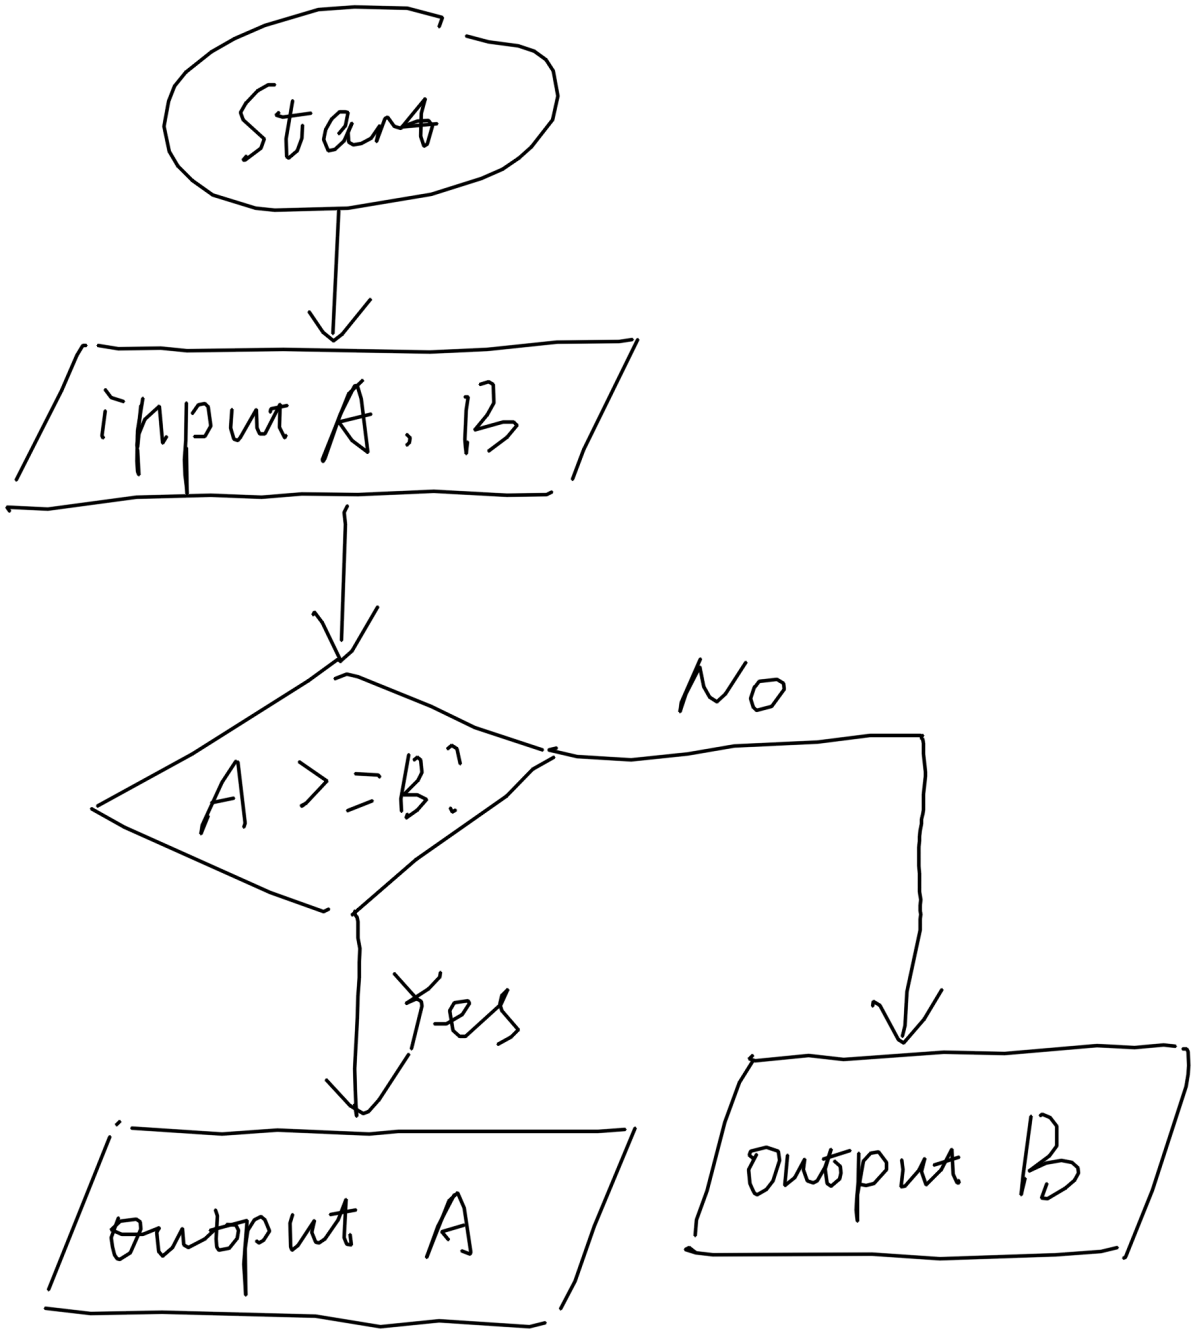 Start
input A, B
A >= B?
No
Yes
output B
output A